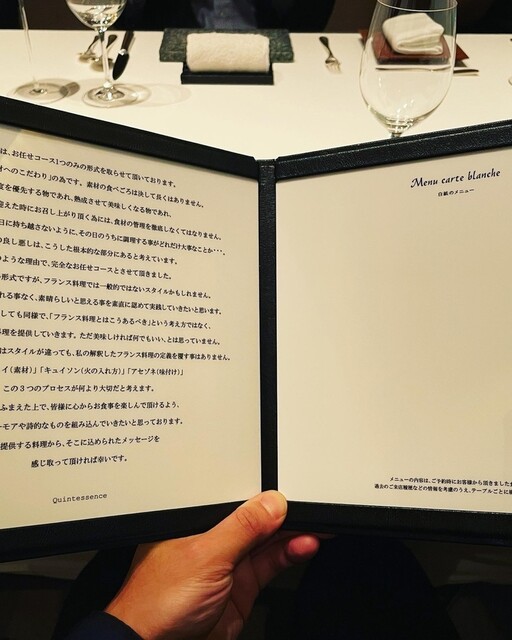 は、お任せコース1つのみの形式を取らせて頂いております。
材へのこだわり」の為です。素材の食べごろは決して長くはありません。
度を優先する物であれ、熟成させて美味しくなる物であれ、
迎えた時にお召し上がり頂く為には、食材の管理を徹底しなくてはなりません。
日に持ち越さないように、その日のうちに調理する事がどれだけ大事なことか・・・。
の良し悪しは、こうした根本的な部分にあると考えています。
のような理由で、完全なお任せコースとさせて頂きました。
形式ですが、フランス料理では一般的ではないスタイルかもしれません。
れる事なく、素晴らしいと思える事を素直に認めて実践していきたいと思います。
しても同様で、「フランス料理とはこうあるべき」という考え方ではなく、
料理を提供していきます。ただ美味しければ何でもいい、とは思っていません。
はスタイルが違っても、私の解釈したフランス料理の定義を覆す事はありません。
イ(素材)」「キュイソン(火の入れ方)」「アセゾネ(味付け)」
この3つのプロセスが何より大切だと考えます。
ふまえた上で、皆様に心からお食事を楽しんで頂けるよう、
ーモアや詩的なものを組み込んでいきたいと思っております。
提供する料理から、そこに込められたメッセージを
感じ取って頂ければ幸いです。
Quintessence
Menu carte blanche
白紙のメニュー
メニューの内容は、ご予約時にお客様から頂きました
過去のご来店履歴などの情報を考慮のうえ、テーブルごとに